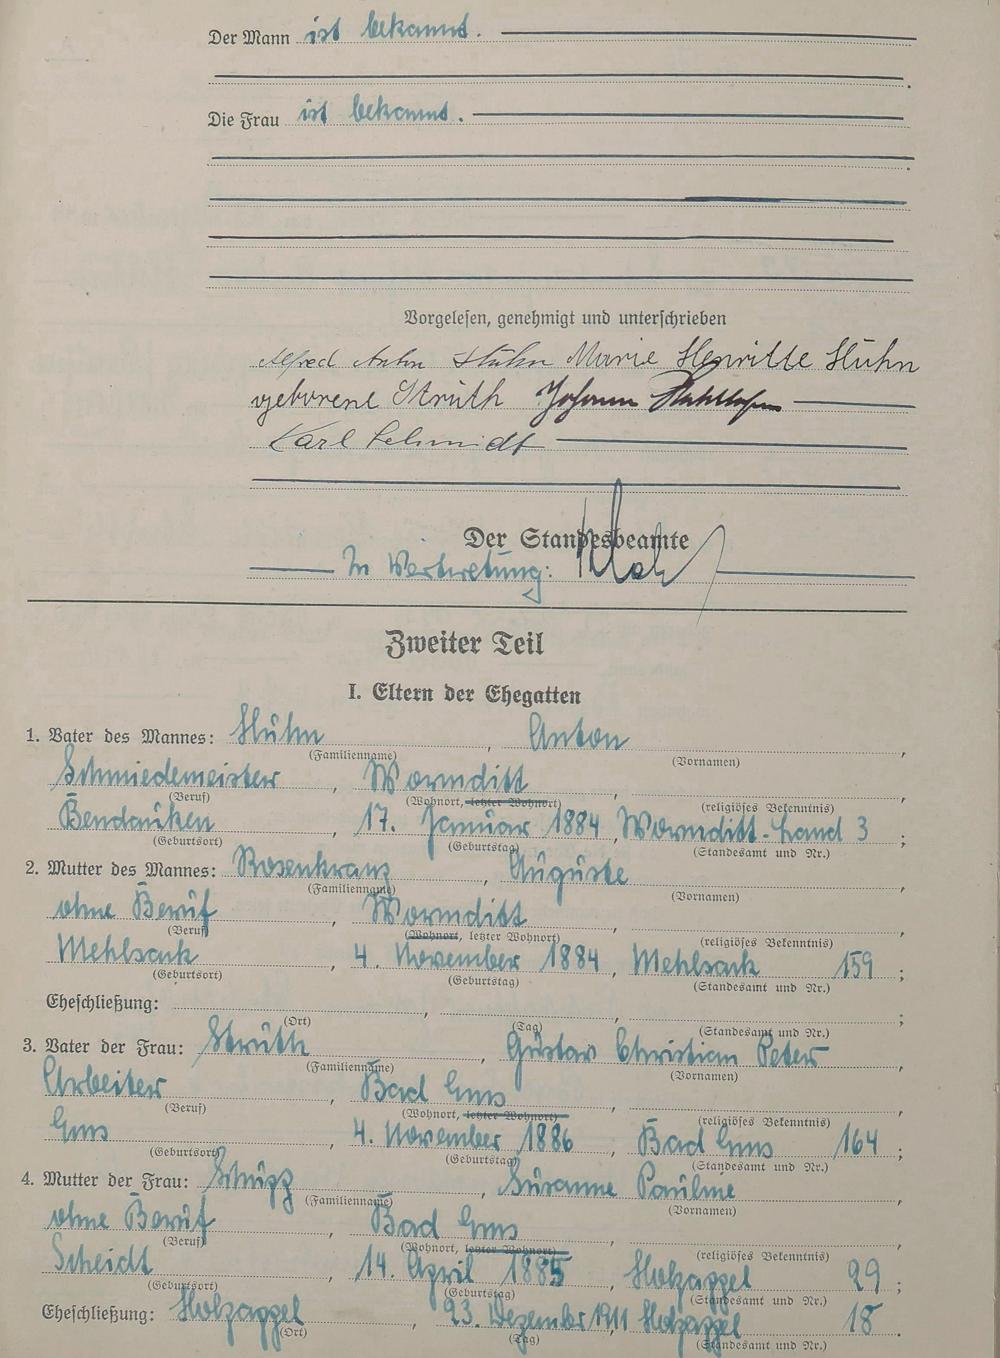 Der Mann ist bekannt.
Die Frau ist bekannt.
Vorgelesen, genehmigt und unterschrieben
Alfred Anton Hühn Marie Henriette Hühn
geborene Strüth Johann
Karl Schmidt
Der Standesbeamte
In Vertretung:
Zweiter Teil
I. Eltern der Ehegatten
1. Vater des Mannes: Hühn, Anton,
(Familienname) (Vornamen)
Schmiedemeister, Wormditt,
(Beruf) (Wohnort, letzter Wohnort) (religiöses Bekenntnis)
Bendauken, 17. Januar 1884, Wormditt-Land 3;
(Geburtsort) (Geburtstag) (Standesamt und Nr.)
2. Mutter des Mannes: Rosenkranz, Auguste,
(Familienname) (Vornamen)
ohne Beruf, Wormditt,
(Beruf) (Wohnort, letzter Wohnort) (religiöses Bekenntnis)
Mehlsack, 4. November 1884, Mehlsack 159;
(Geburtsort) (Geburtstag) (Standesamt und Nr.)
Eheschließung: , , ;
(Ort) (Tag) (Standesamt und Nr.)
3. Vater der Frau: Strüth, Gustav Christian Peter,
(Familienname) (Vornamen)
Arbeiter, Bad Ems,
(Beruf) (Wohnort, letzter Wohnort) (religiöses Bekenntnis)
Ems, 4. November 1886, Bad Ems 164;
(Geburtsort) (Geburtstag) (Standesamt und Nr.)
4. Mutter der Frau: Schupp, Susanne Pauline,
(Familienname) (Vornamen)
ohne Beruf, Bad Ems,
(Beruf) (Wohnort, letzter Wohnort) (religiöses Bekenntnis)
Scheidt, 14. April 1885, Holzappel 29;
(Geburtsort) (Geburtstag) (Standesamt und Nr.)
Eheschließung: Holzappel, 23. Dezember 1911, Holzappel 18.
(Ort) (Tag) (Standesamt und Nr.)